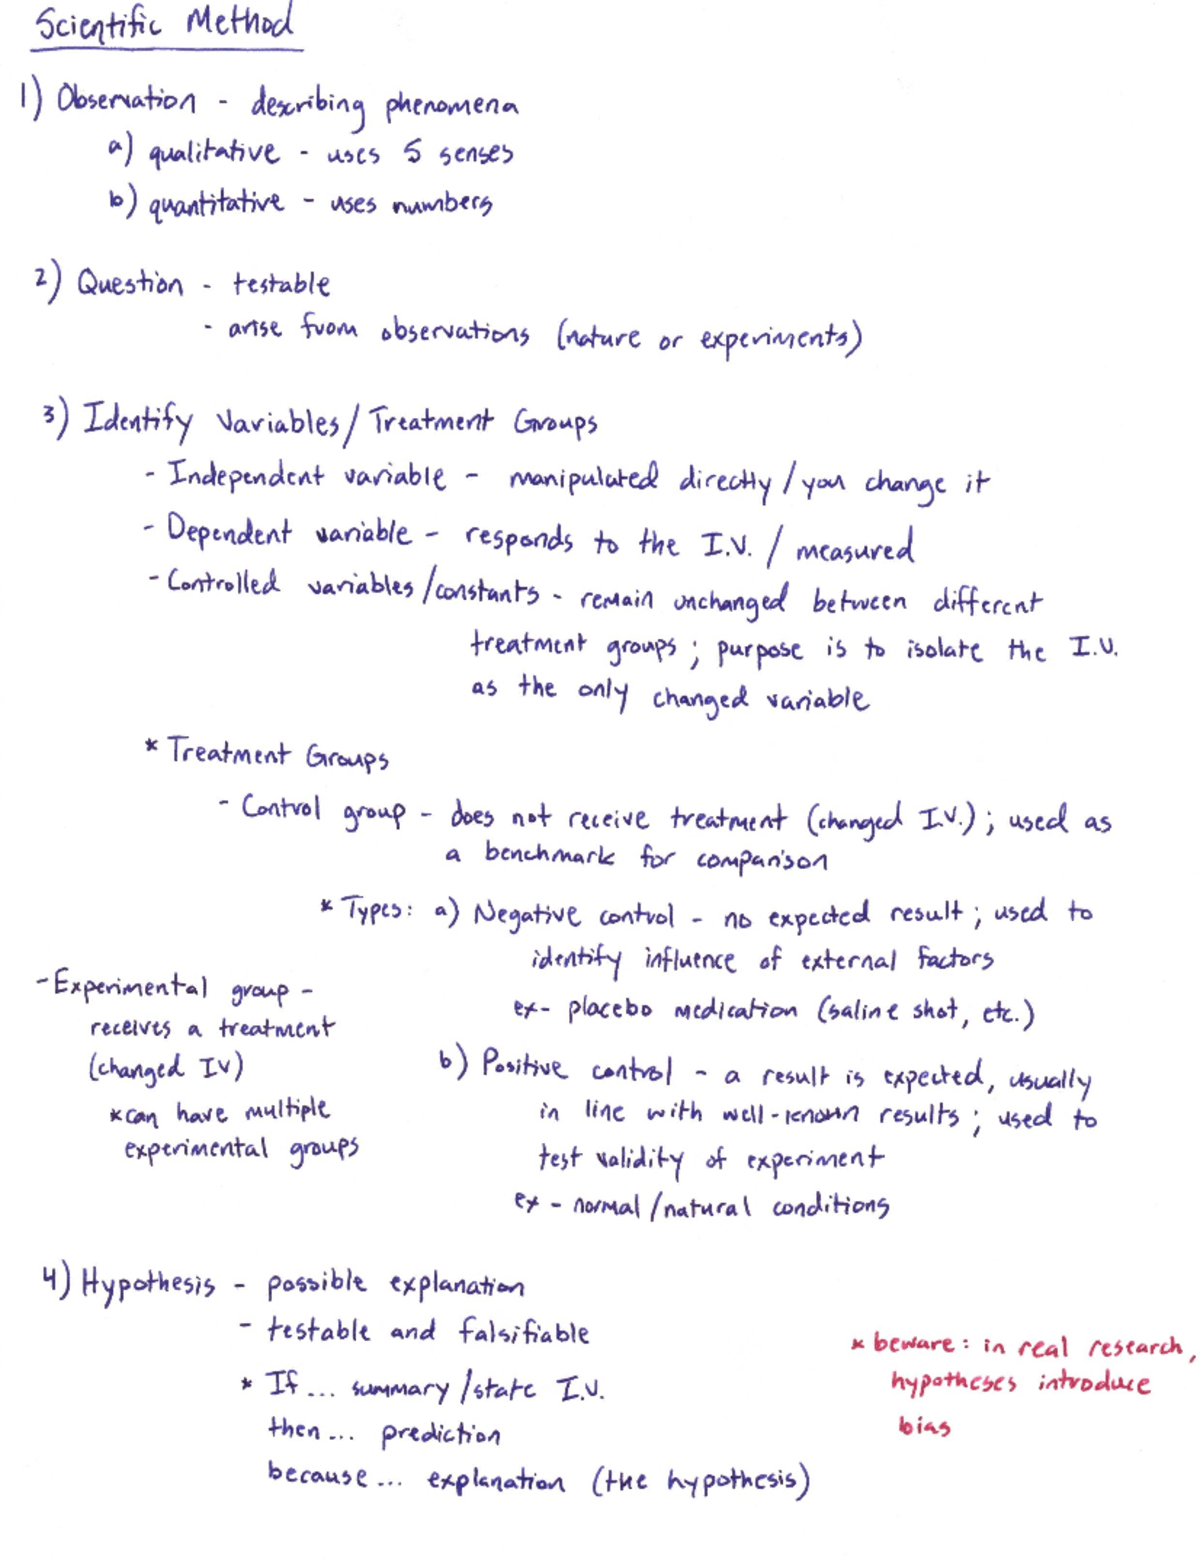 Scientific Method
1) Observation - describing phenomena
a) qualitative - uses 5 senses
b) quantitative - uses numbers
2) Question - testable
- arise from observations (nature or experiments)
3) Identify Variables/Treatment Groups
- Independent variable - manipulated directly/you change it
- Dependent variable - responds to the I.V. / measured
- Controlled variables/constants - remain unchanged between different
treatment groups; purpose is to isolate the I.V.
as the only changed variable
* Treatment Groups
- Control group - does not receive treatment (changed I.V.); used as
a benchmark for comparison
* Types: a) Negative control - no expected result; used to
identify influence of external factors
ex- placebo medication (saline shot, etc.)
b) Positive control - a result is expected, usually
in line with well-known results; used to
test validity of experiment
ex - normal/natural conditions
- Experimental group -
receives a treatment
(changed IV)
* can have multiple
experimental groups
4) Hypothesis - possible explanation
- testable and falsifiable
* If... summary/state I.V.
then... prediction
because... explanation (the hypothesis)
* beware: in real research,
hypotheses introduce
bias